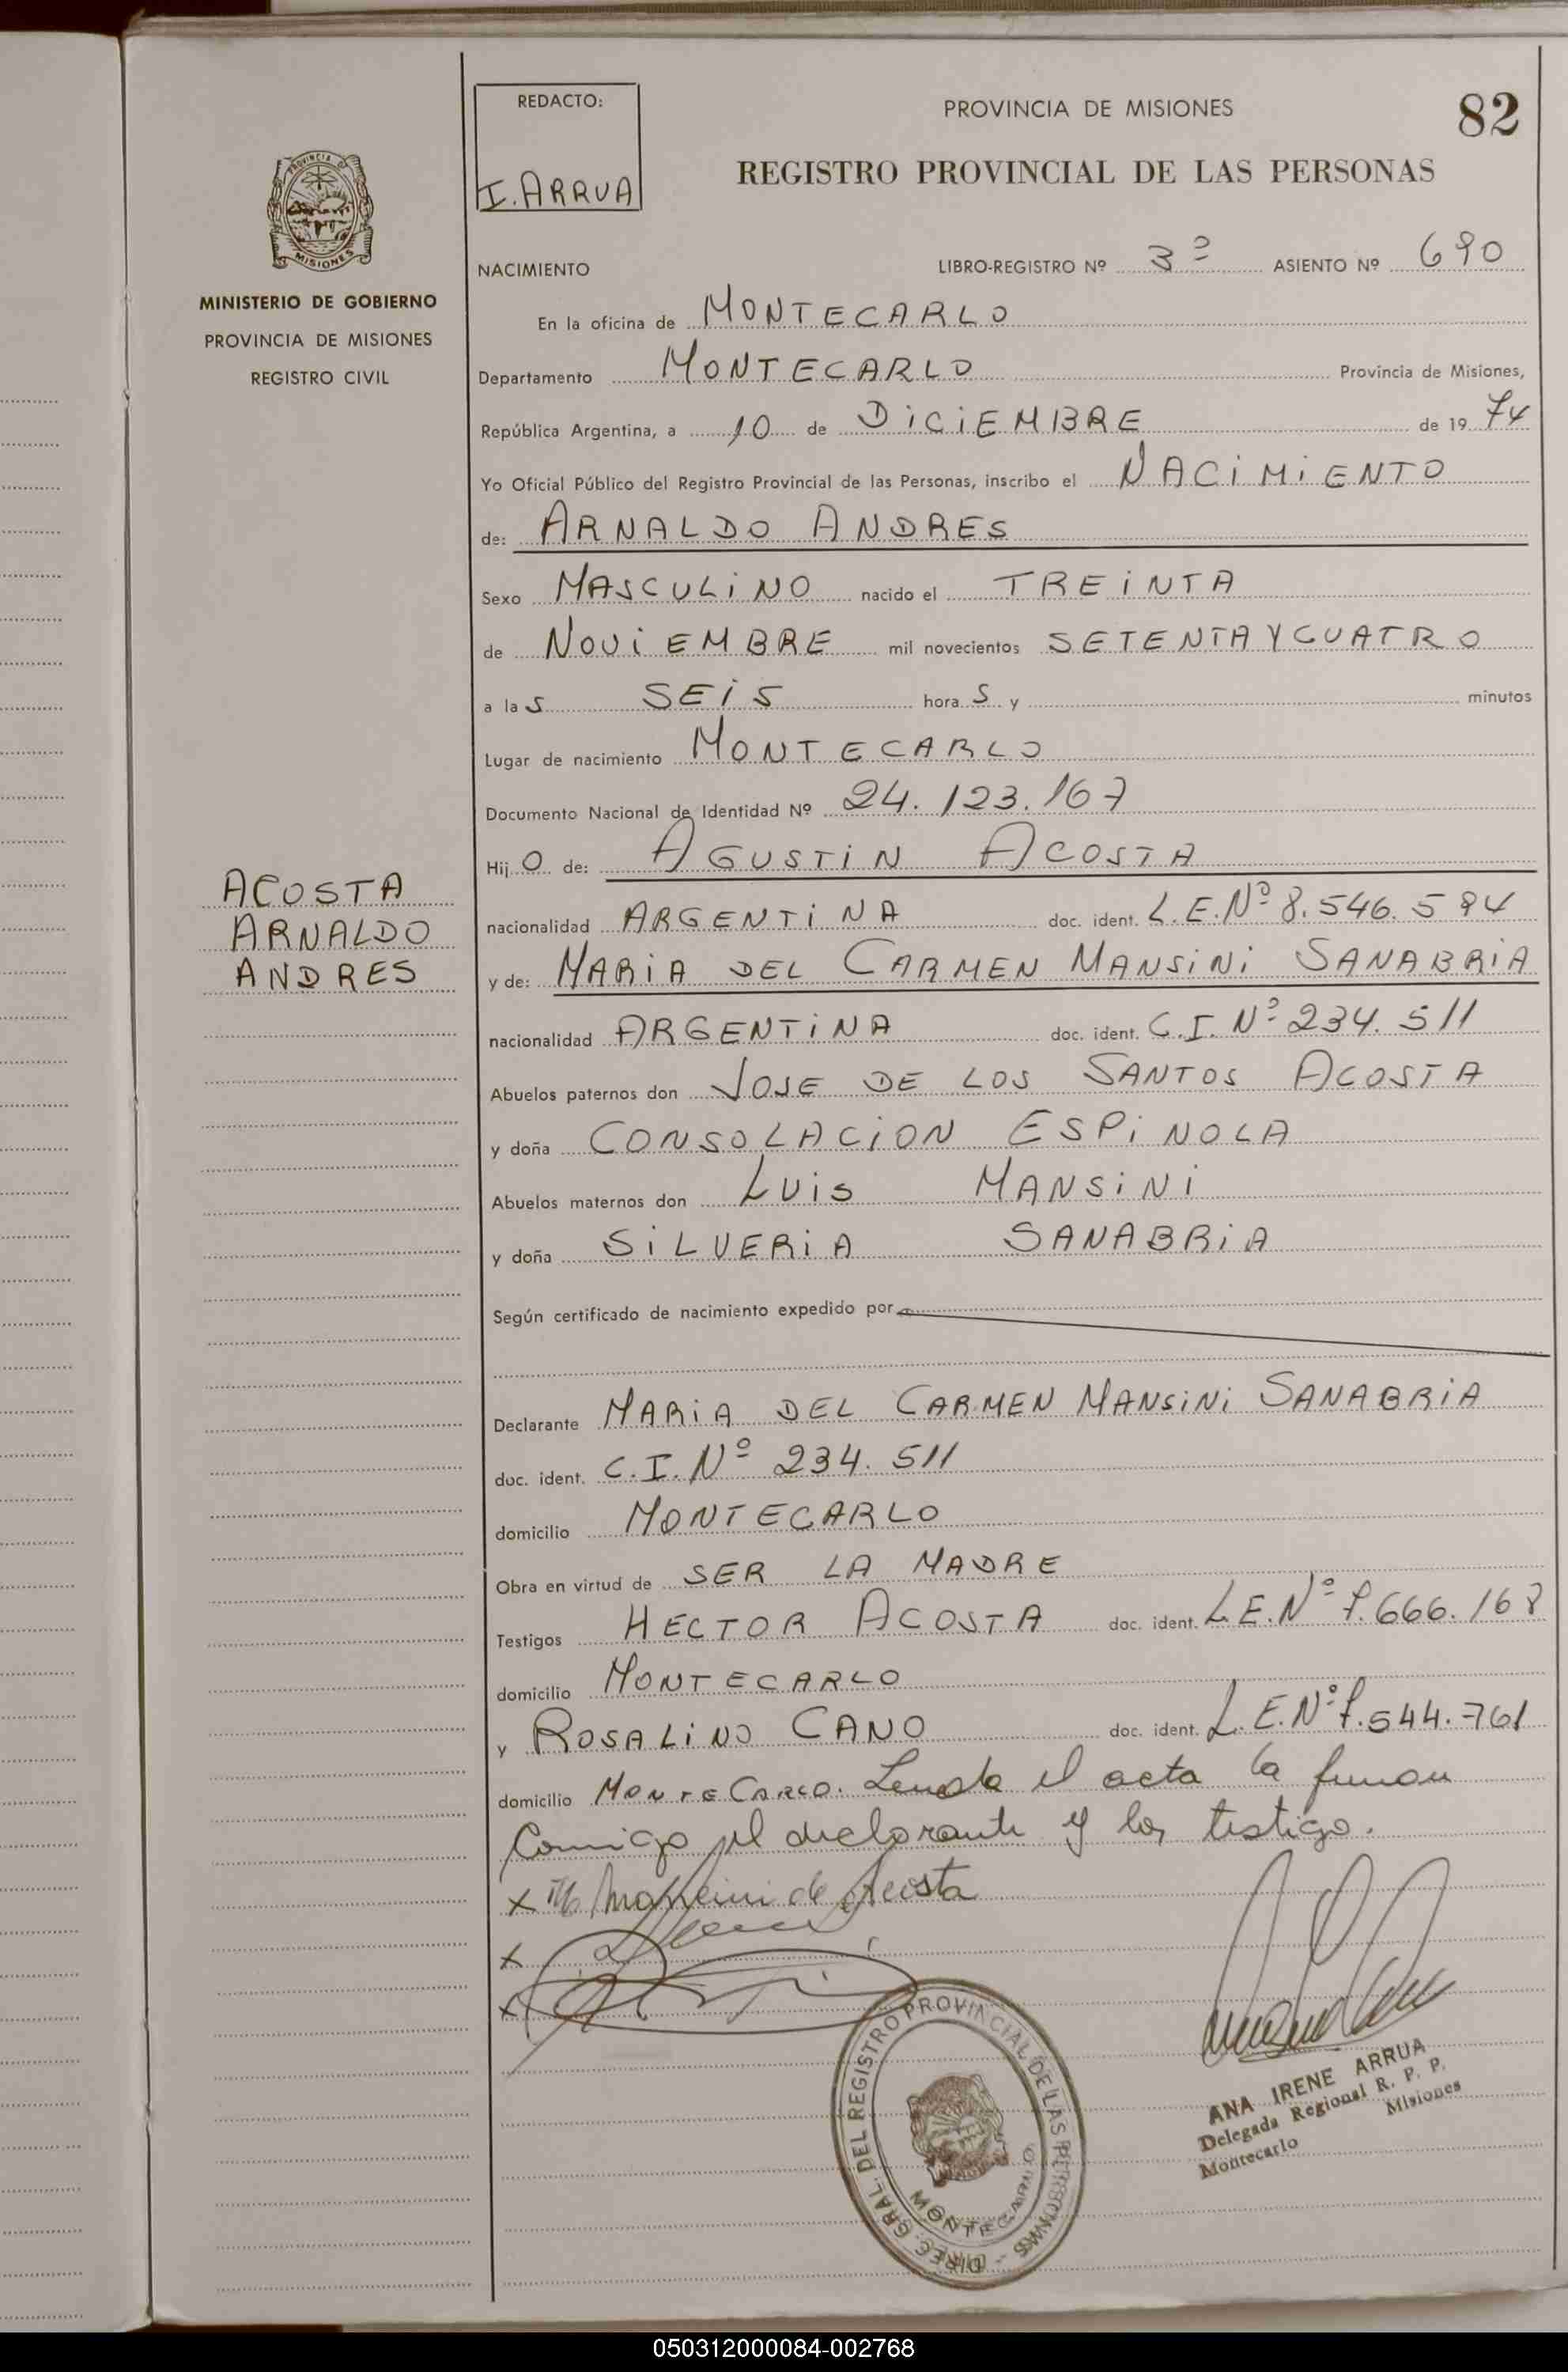 82
REDACTO:
I. ARRUA
PROVINCIA DE MISIONES
REGISTRO PROVINCIAL DE LAS PERSONAS
PROVINCIA DE
MISIONES
MINISTERIO DE GOBIERNO
PROVINCIA DE MISIONES
REGISTRO CIVIL
NACIMIENTO LIBRO-REGISTRO Nº 3º ASIENTO Nº 690
En la oficina de MONTECARLO
Departamento MONTECARLO Provincia de Misiones,
República Argentina, a 10 de DICIEMBRE de 1974
Yo Oficial Público del Registro Provincial de las Personas, inscribo el NACIMIENTO
de: ARNALDO ANDRES
Sexo MASCULINO nacido el TREINTA
de NOVIEMBRE mil novecientos SETENTA Y CUATRO
a las SEIS horas y minutos
Lugar de nacimiento MONTECARLO
Documento Nacional de Identidad Nº 24.123.167
Hijo de: AGUSTIN ACOSTA
ACOSTA
ARNALDO
ANDRES
nacionalidad ARGENTINA doc. ident. L.E.Nº 8.546.594
y de: MARIA DEL CARMEN MANSINI SANABRIA
nacionalidad ARGENTINA doc. ident. C.I. Nº 234.511
Abuelos paternos don JOSE DE LOS SANTOS ACOSTA
y doña CONSOLACION ESPINOLA
Abuelos maternos don LUIS MANSINI
y doña SILVERIA SANABRIA
Según certificado de nacimiento expedido por
Declarante MARIA DEL CARMEN MANSINI SANABRIA
doc. ident. C.I. Nº 234.511
domicilio MONTECARLO
Obra en virtud de SER LA MADRE
Testigos HECTOR ACOSTA doc. ident. L.E.Nº 7.666.168
domicilio MONTECARLO
y ROSALINO CANO doc. ident. L.E.Nº 7.544.761
domicilio MONTECARLO. Leida el acta la firman
Comigo el declarante y los testigo.
x M Mansini de Acosta
x
x
DIREC. GRAL. DEL REGISTRO PROVINCIAL DE LAS PERSONAS
MONTECARLO
ANA IRENE ARRUA
Delegada Regional R. P. P.
Montecarlo Misiones
050312000084-002768